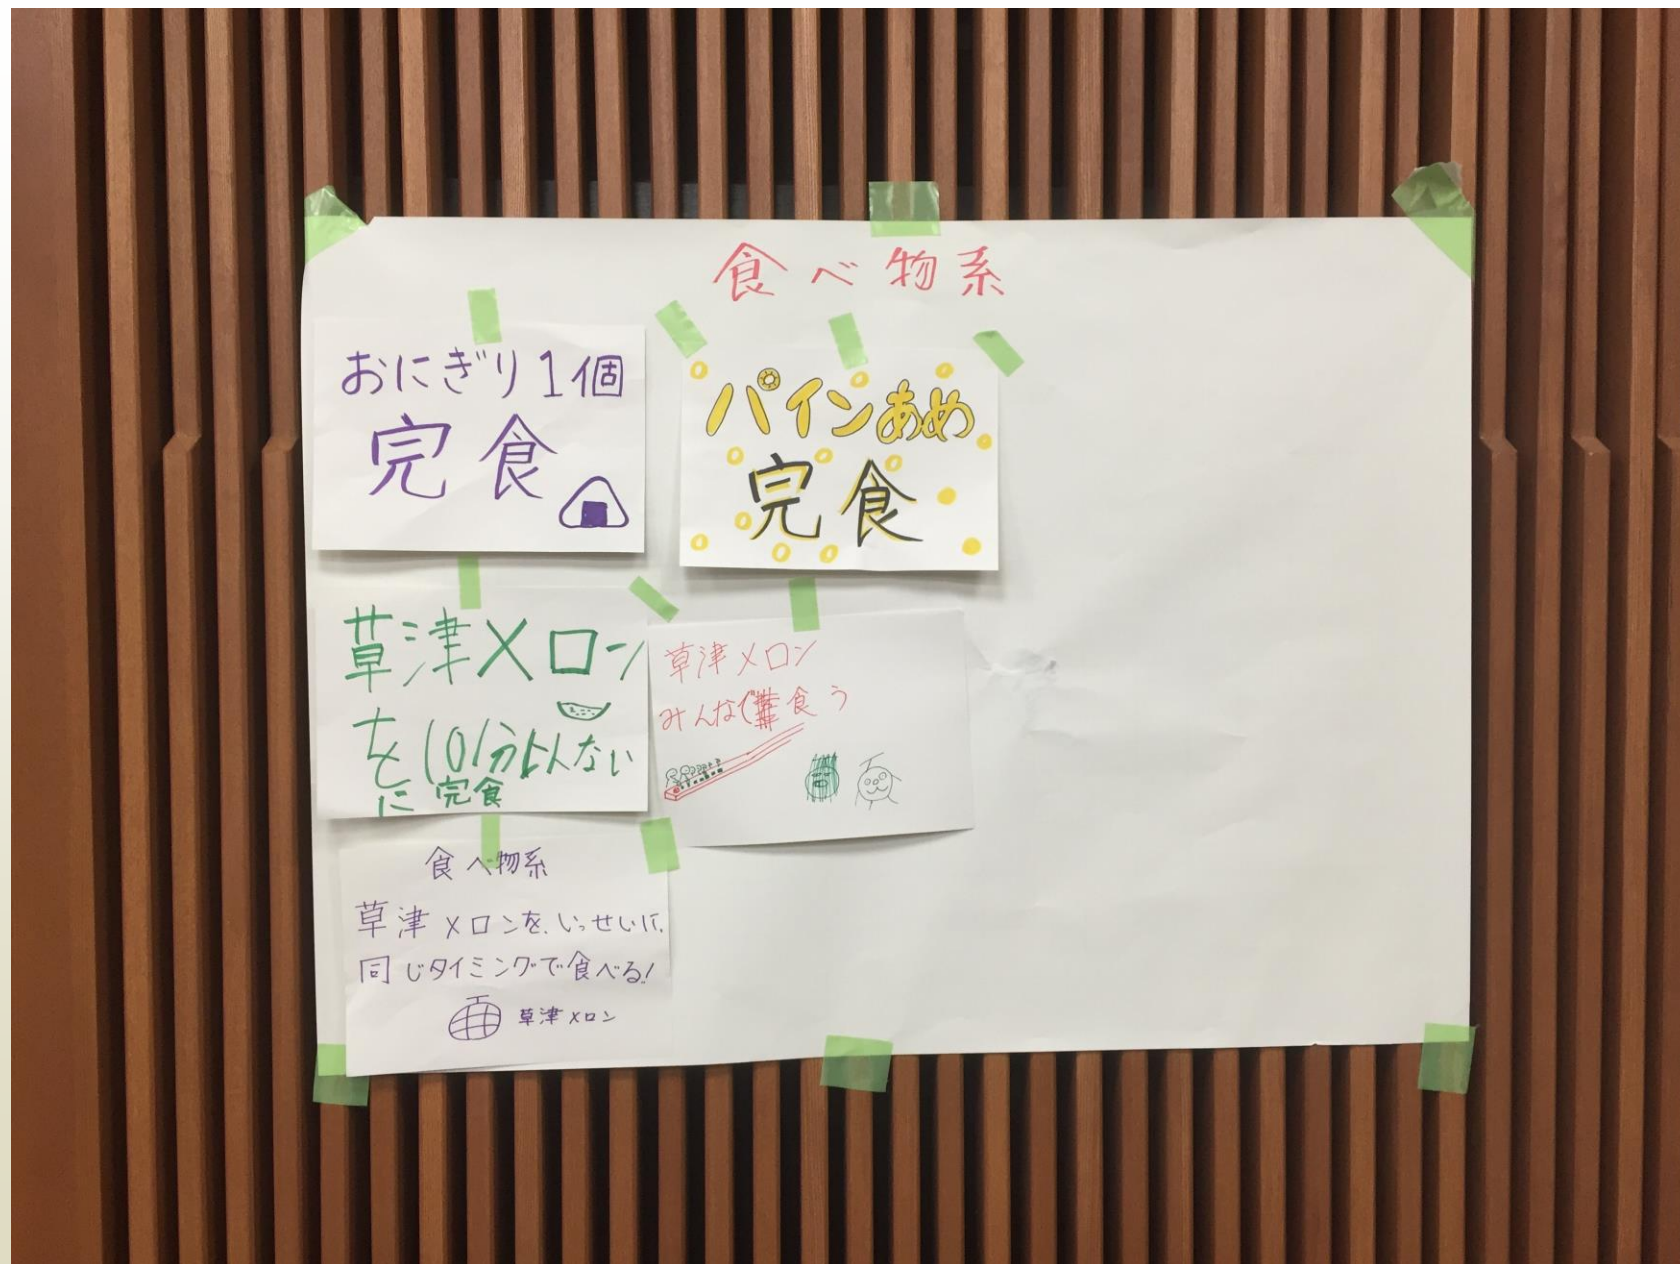 食べ物系
おにぎり1個
完食
パインあめ
完食
草津メロン
を10分いんない
に完食
草津メロン
みんなで食う
食べ物系
草津メロンを、いっせいに、
同じタイミングで食べる!
草津メロン